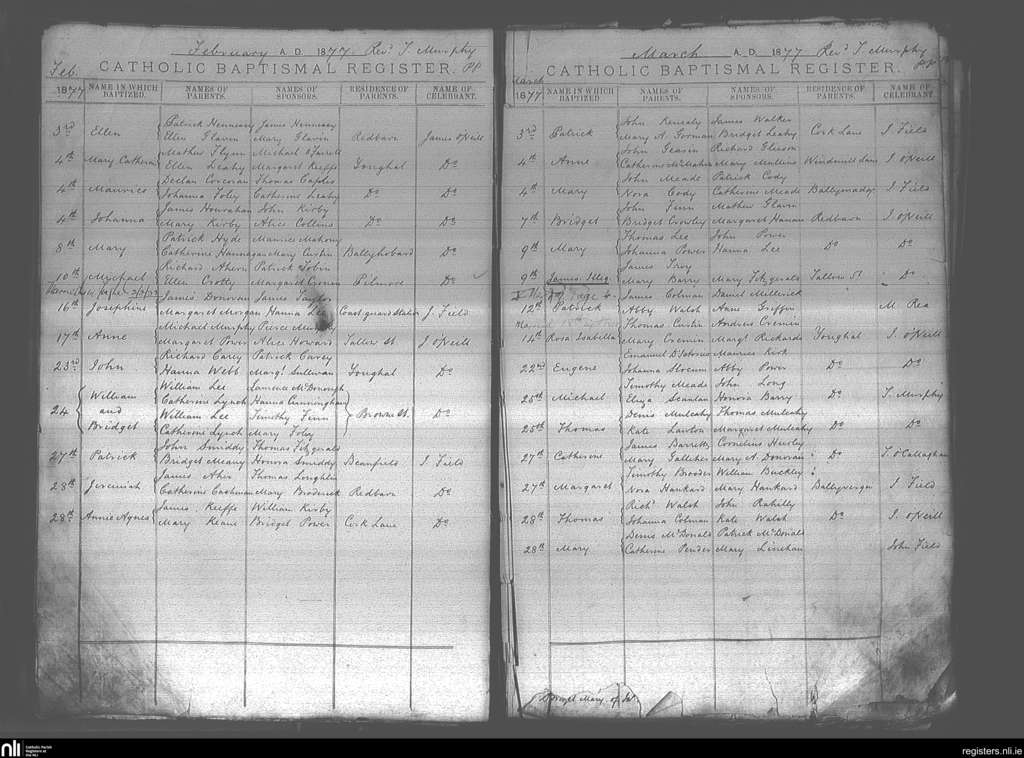 February A.D. 1877. Revd. T. Murphy PP.
CATHOLIC BAPTISMAL REGISTER.
Feb. 1877 NAME IN WHICH BAPTIZED. NAMES OF PARENTS. NAMES OF SPONSORS. RESIDENCE OF PARENTS. NAME OF CELEBRANT.
Patrick Hennessy James Hennessy
3rd Ellen Ellen Flavin Mary Flavin Redbarn James O'Neill
Mathew Flynn Michael O'Farrell
4th Mary Catherine Ellen Leahy Margaret Keeffe Youghal Do
Declan Corcoran Thomas Caples
4th Maurice Johanna Foley Catherine Leahy Do Do
James Hourahan John Kirby
4th Johanna Mary Kirby Alice Collins Do Do
Patrick Hyde Maurice Mahony
8th Mary Catherine Hannagan Mary Curtin Ballyhobard Do
Richard Ahern Patrick Tobin
10th Michael Ellen Crotty Margaret Cronin Pilmore Do
James Donovan James Taylor
16th Josephine Margaret Morgan Hanna Lee Coastguard Station J. Field
Michael Murphy Pierce
17th Anne Margaret Power Alice Howard Tallow St. J. O'Neill
Richard Carey Patrick Carey
23rd John Hanna Webb Margt. Sullivan Youghal Do
William Lee Laurence McDonough
William Catherine Lynch Hanna Cunningham
24 and William Lee Timothy Finn Browne St. Do
Bridget Catherine Lynch Mary Foley
John Smiddy Thomas Fitzgerald
27th Patrick Bridget Meany Honora Smiddy Beanfield J. Field
James Aher Thomas Loughlin
28th Jeremiah Catherine Cashman Mary Broderick Redbarn Do
James Keeffe William Kirby
28th Annie Agnes Mary Keane Bridget Power Cork Lane Do
March A.D. 1877 Revd. T. Murphy PP.
CATHOLIC BAPTISMAL REGISTER.
March 1877 NAME IN WHICH BAPTIZED NAMES OF PARENTS. NAMES OF SPONSORS. RESIDENCE OF PARENTS. NAME OF CELEBRANT
John Kenealy James Walker
3rd Patrick Mary A. Gorman Bridget Leahy Cork Lane J. Field
John Gleason Richard Gleeson
4th Anne Catherine McMahon Mary Mullins Windmill Lane J. O'Neill
John Meade Patrick Cody
4th Mary Nora Cody Catherine Meade Ballymady J. Field
John Finn Mathew Flavin
7th Bridget Bridget Crowley Margaret Hanan Redbarn J. O'Neill
Thomas Lee John Power
9th Mary Johanna Power Hanna Lee Do Do
James Troy
9th James Illeg. Mary Barry Mary Fitzgerald Tallow St. Do
James Colman Daniel Mellerick
12th Patrick Abby Walsh Anne Griffin M. Rea
Thomas Curtin Andrew Cremin
14th Rosa Isabella Mary Cremin Margt. Rickards Youghal J. O'Neill
Emanuel Maurice Kirk
22nd Eugene Johanna Slocum Abby Power Do Do
Timothy Meade John Long
25th Michael Eliza Scanlan Honora Barry Do T. Murphy
Denis Mulcahy Thomas Mulcahy
25th Thomas Kate Lawton Margaret Mulcahy Do Do
James Barrett Cornelius Hurley
27th Catherine Mary Galleher Mary A. Donovan Do T. O'Callaghan
Timothy Brooder William Buckley
27th Margaret Nora Hankard Mary Hankard Ballyvergin J. Field
Richd. Walsh John Rahilly
28th Thomas Johanna Colman Kate Walsh Do J. O'Neill
Denis McDonald Patrick McDonald
28th Mary Catherine Pender Mary Linehan John Field
nli Catholic Parish Registers at the NLI
registers.nli.ie